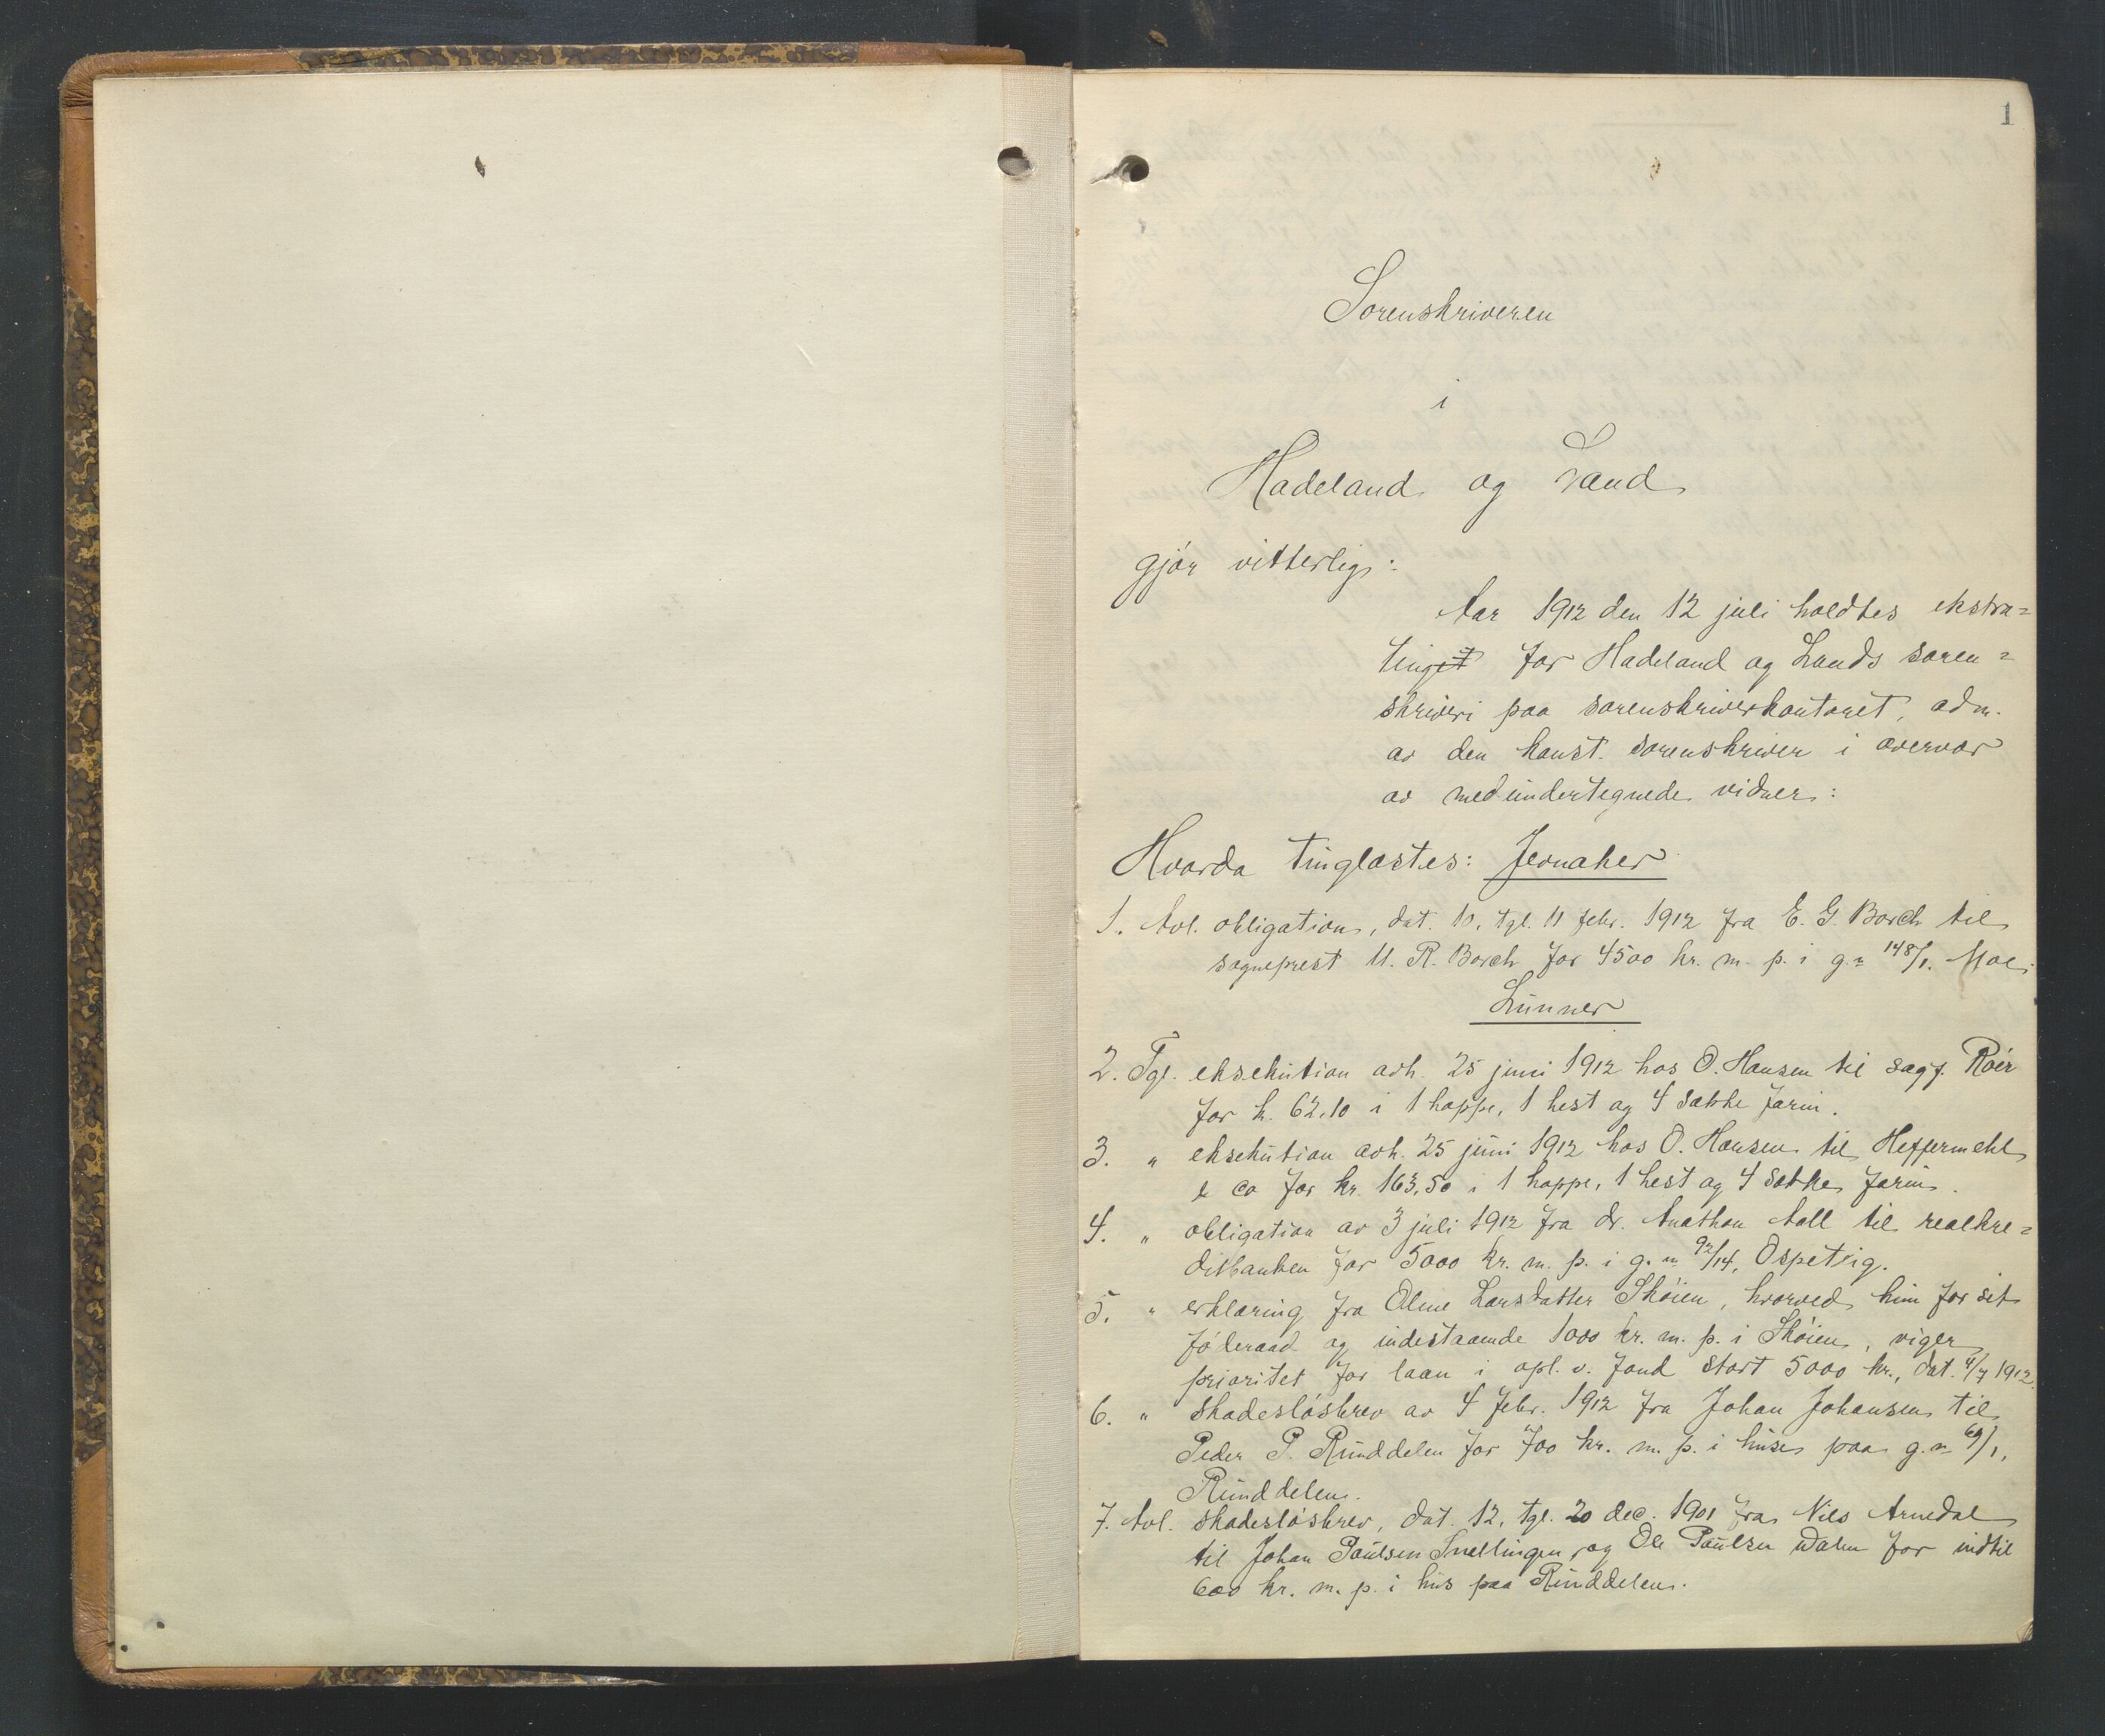 1
Sorenskriveren
i
Hadeland og Land
gjör vitterlig:
Aar 1912 den 12 juli holdtes ekstra=
tinget for Hadeland og Lands soren=
skriveri paa sorenskriverkontoret, adm.
av den konst. sorenskriver i overvær
av medundertegnede vidner:
Hvorda tinglæstes: Jevnaker
1. Avl. obligation, dat. 10, tgl. 11 febr. 1912 fra E. G. Borch til
sogneprest U. R. Borch for 4500 kr. m. p. i g. n 148/1. Moe;
Lunner
2. Tgl. eksekution avh. 25 juni 1912 hos O. Hansen til sagf. Röér
for k. 62.10 i 1 hoppe, 1 hest og 4 sække farin.
3. " eksekution avh. 25 juni 1912 hos O. Hansen til Heffermehl
& co for kr. 163,50 i 1 hoppe, 1 hest og 4 sække farin.
4. " obligation av 3 juli 1912 fra dr. Anathon Aall til realkre=
ditbanken for 5000 kr. m. p. i g. n 92/14, Ospetvig.
5. " erklæring fra Oline Larsdatter Sköien, hvorved hun for sit
föderaad og indestaaende 1000 kr. m. p. i Sköien, viger
prioritet for laan i opl. v. fond stort 5000 kr., dat. 4/7 1912.
6. " skadeslösbrev av 4 febr. 1912 fra Johan Johansen til
Peder P. Runddelen for 700 kr. m. p. i huse paa g. n 69/1,
Runddelen.
7. Avl. skadeslösbrev, dat. 12, tgl. 20 dec. 1901 fra Nils Arnedal
til Johan Paulsen Snellingen og Ole Paulsen Dalen for indtil
600 kr. m. p. i hus paa Runddelen.